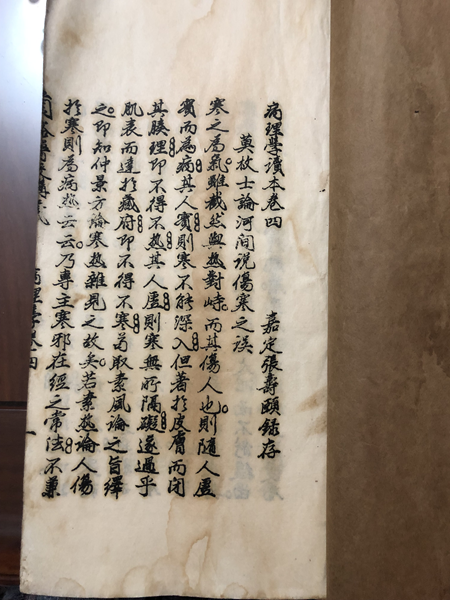 病理學讀本卷四　嘉定張壽頤錄存
莫枚士論河間說傷寒之誤
寒之為氣。雖截然與熱對峙。而其傷人也。則隨人虛
實而為病。其人實則寒不能深入但著於皮膚而閉
其腠理即不得不熱。其人虛則寒無所隔礙遂過乎
肌表而達於臟府即不得不寒。苟取素風論之旨繹
之。即知仲景方論寒熱雜見之故矣。若素熱論人傷
於寒則為病熱云云。乃專主寒邪在經之常法不兼
病理學卷四　一